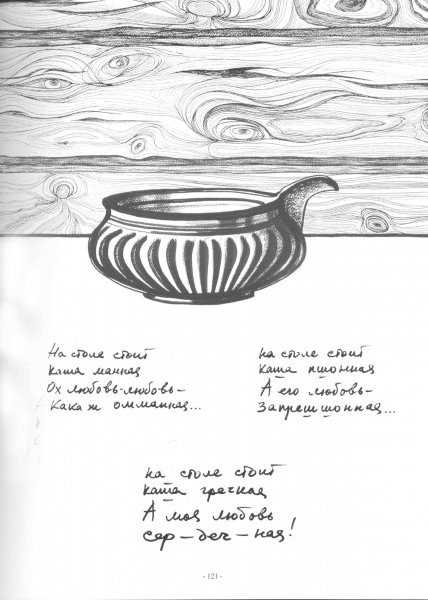 На столе стоит
каша манная
Ох любовь-любовь–
Кака ж омманная...
на столе стоит
каша пшонная
А его любовь–
Запрешшонная...
на столе стоит
каша гречная
А моя любовь
сер–деч–ная!
- 121 -